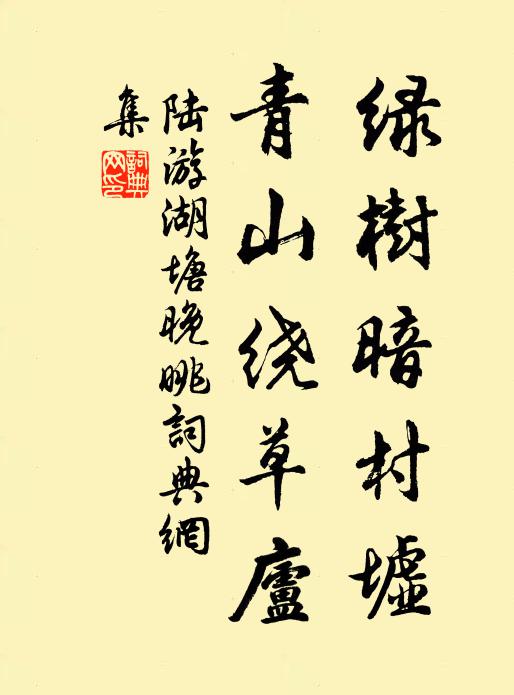 绿樹暗村墟
青山绕草廬
陆游湖塘晚眺詞典網
集
詞典
网印